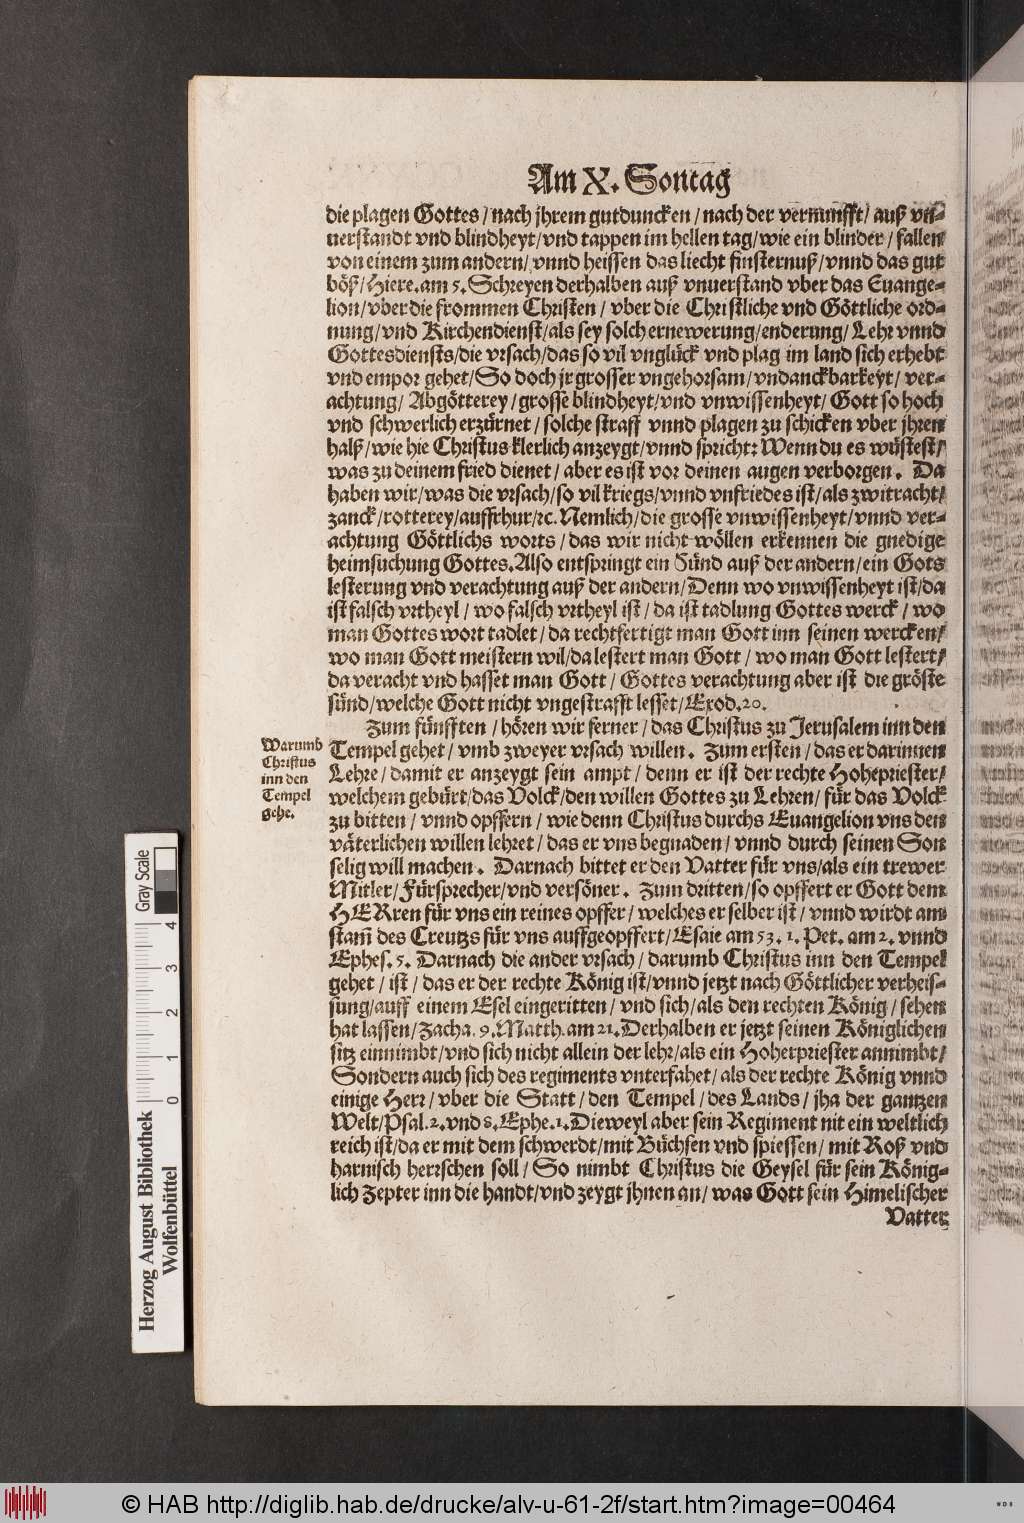 Am X. Sontag
die plagen Gottes / nach jhrem gutduncken / nach der vernunfft / auß vn-
uerstandt vnd blindheyt / vnd tappen im hellen tag / wie ein blinder / fallen
von einem zum andern / vnnd heissen das liecht finsternuß / vnnd das gut
böß / Hiere. am 5. Schreyen derhalben auß vnuerstand vber das Euange-
lion / vber die frommen Christen / vber die Christliche vnd Göttliche ord-
nung / vnd Kirchendienst / als sey solch ernewerung / enderung / Lehr vnnd
Gottesdiensts / die vrsach / das so vil vnglück vnd plag im land sich erhebt
vnd empor gehet / So doch jr grosser vngehorsam / vndanckbarkeyt / ver-
achtung / Abgötterey / grosse blindheyt / vnd vnwissenheyt / Gott so hoch
vnd schwerlich erzürnet / solche straff vnnd plagen zu schicken vber jhren
halß / wie hie Christus klerlich anzeygt / vnnd spricht: Wenn du es wüstest /
was zu deinem fried dienet / aber es ist vor deinen augen verborgen. Da
haben wir / was die vrsach / so vil kriegs / vnnd vnfriedes ist / als zwitracht /
zanck / rotterey / auffrhur / ꝛc. Nemlich / die grosse vnwissenheyt / vnnd ver-
achtung Göttlichs worts / das wir nicht wöllen erkennen die gnedige
heimsuchung Gottes. Also entspringt ein Sünd auß der andern / ein Gots
lesterung vnd verachtung auß der andern / Denn wo vnwissenheyt ist / da
ist falsch vrtheyl / wo falsch vrtheyl ist / da ist tadlung Gottes werck / wo
man Gottes wort tadlet / da rechtfertigt man Gott inn seinen wercken /
wo man Gott meistern wil / da lestert man Gott / wo man Gott lestert /
da veracht vnd hasset man Gott / Gottes verachtung aber ist die gröste
sünd / welche Gott nicht vngestrafft lesset / Exod. 20.
Zum fünfften / hören wir ferner / das Christus zu Jerusalem inn den
Tempel gehet / vmb zweyer vrsach willen. Zum ersten / das er darinnen
Lehre / damit er anzeygt sein ampt / denn er ist der rechte Hohepriester /
welchem gebürt / das Volck / den willen Gottes zu Lehren / für das Volck
zu bitten / vnnd opffern / wie denn Christus durchs Euangelion vns den
väterlichen willen lehret / das er vns begnaden / vnnd durch seinen Son
selig will machen. Darnach bittet er den Vatter für vns / als ein trewer
Mitler / Fürsprecher / vnd versöner. Zum dritten / so opffert er Gott dem
HERren für vns ein reines opffer / welches er selber ist / vnnd wirdt am
stam̃ des Creutzs für vns auffgeopffert / Esaie am 53. 1. Pet. am 2. vnnd
Ephes. 5. Darnach die ander vrsach / darumb Christus inn den Tempel
gehet / ist / das er der rechte König ist / vnnd jetzt nach Göttlicher verheis-
sung / auff einem Esel eingeritten / vnd sich / als den rechten König / sehen
hat lassen / Zacha. 9. Matth. am 21. Derhalben er jetzt seinen Königlichen
sitz einnimbt / vnd sich nicht allein der lehr / als ein Hoherpriester annimbt /
Sondern auch sich des regiments vnterfahet / als der rechte König vnnd
einige Herr / vber die Statt / den Tempel / des Lands / jha der gantzen
Welt / Psal. 2. vnd 8. Ephe. 1. Dieweyl aber sein Regiment nit ein weltlich
reich ist / da er mit dem schwerdt / mit Büchsen vnd spiessen / mit Roß vnd
harnisch herrschen soll / So nimbt Christus die Geysel für sein König-
lich Zepter inn die handt / vnd zeygt jhnen an / was Gott sein Himelischer
Vatter
Warumb
Christus
inn den
Tempel
gehe.
Gray Scale
0 1 2 3 4
Herzog August Bibliothek
Wolfenbüttel
© HAB http://diglib.hab.de/drucke/alv-u-61-2f/start.htm?image=00464